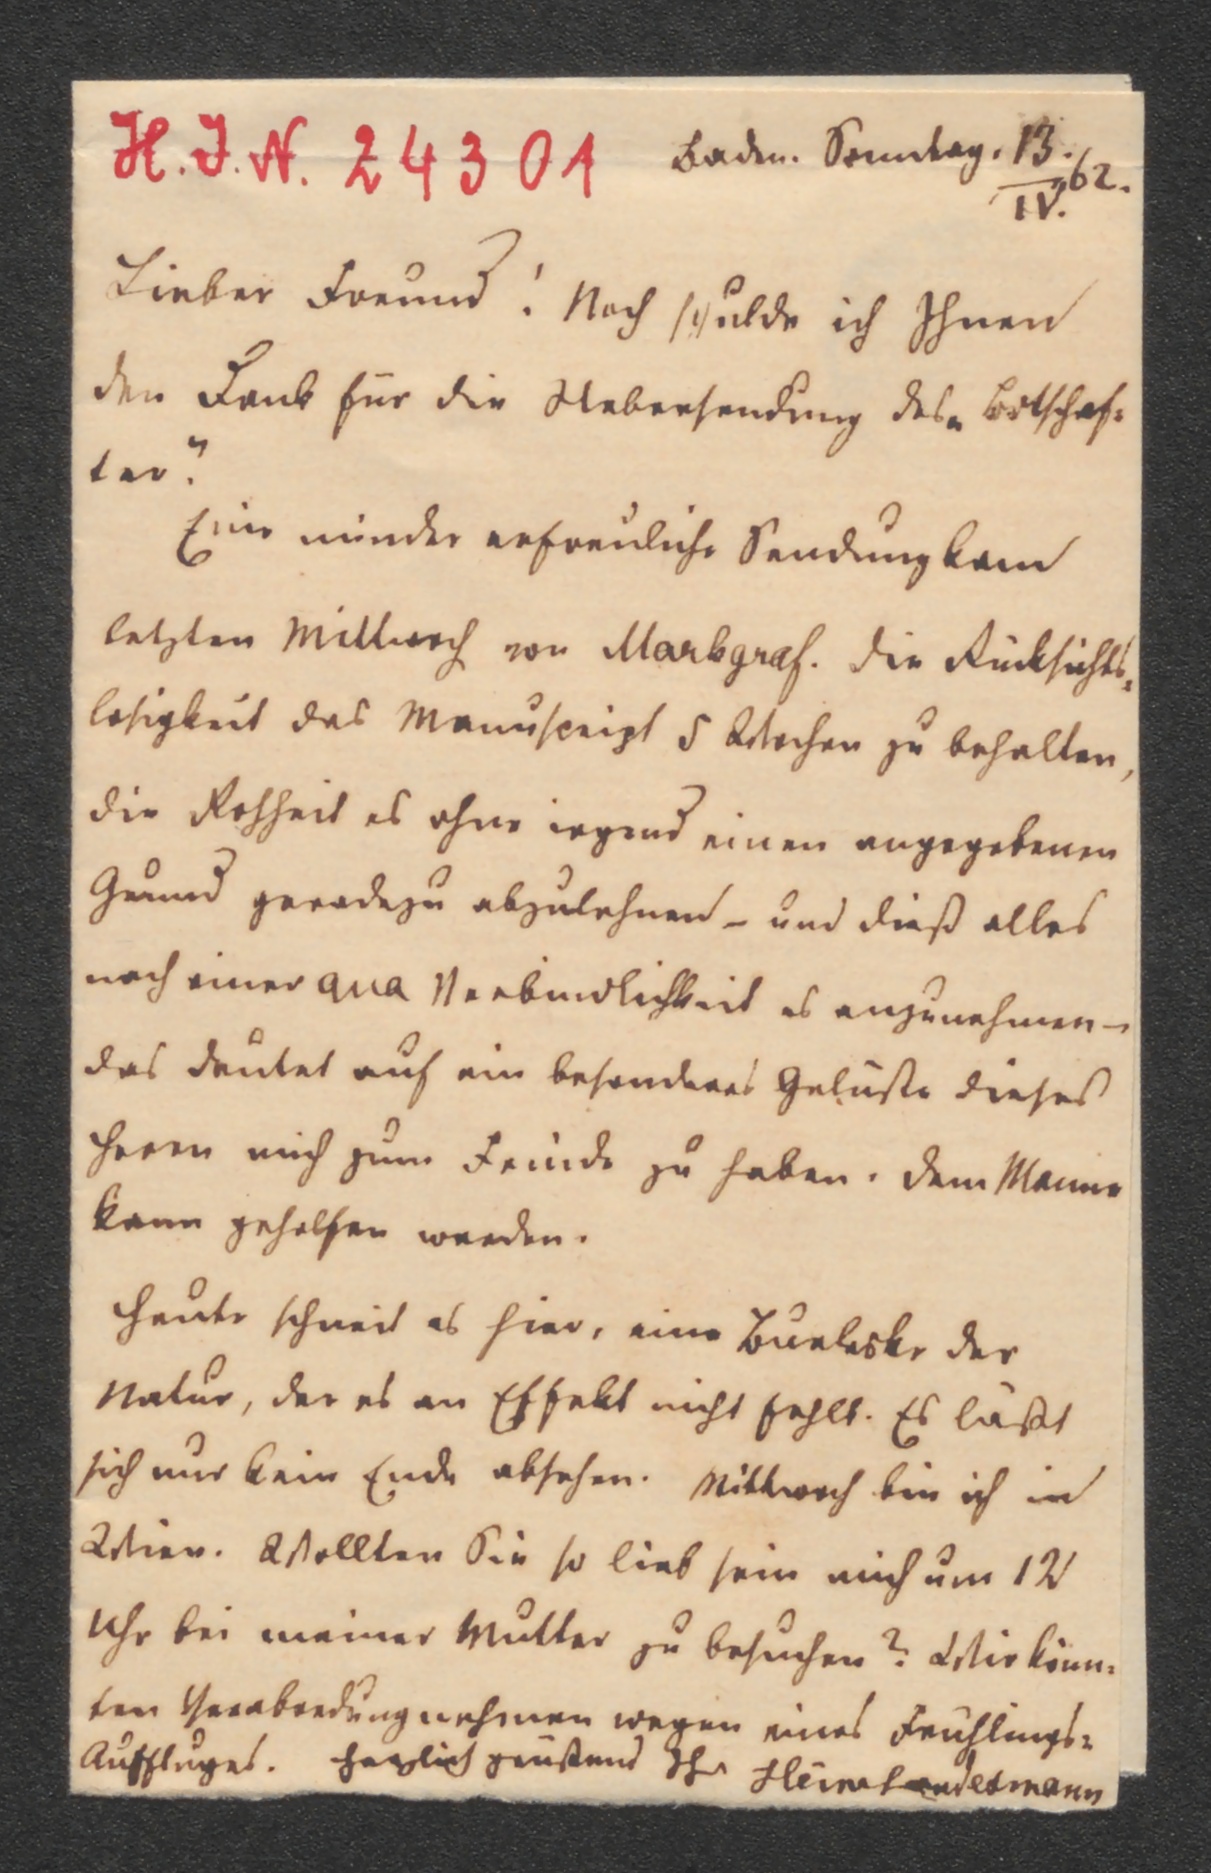 H. I. N. 24301
Baden. Sonntag. 13./IV. 62.
Lieber Freund! Noch schulde ich Ihnen
den Dank für die Uebersendung des „Botschaf-
ter“.
Eine minder erfreuliche Sendung kam
letzten Mittwoch von Markgraf. Die Rücksichts-
losigkeit das Manuscript 5 Wochen zu behalten,
die Rohheit es ohne irgend einen angegebenen
Grund geradezu abzulehnen – und dieß alles
nach einer qua Verbindlichkeit es anzunehmen –
das deutet auf ein besonderes Gelüste dieses
Herrn mich zum Feinde zu haben. Dem Manne
kann geholfen werden.
Heute schneit es hier, eine Burleske der
Natur, der es an Effekt nicht fehlt. Es läßt
sich nur kein Ende absehen. Mittwoch bin ich in
Wien. Wollten Sie so lieb sein mich um 12
Uhr bei meiner Mutter zu besuchen? Wir könn-
ten Verabredung nehmen wegen eines Frühlings-
Ausfluges. Herzlich grüßend Ihr